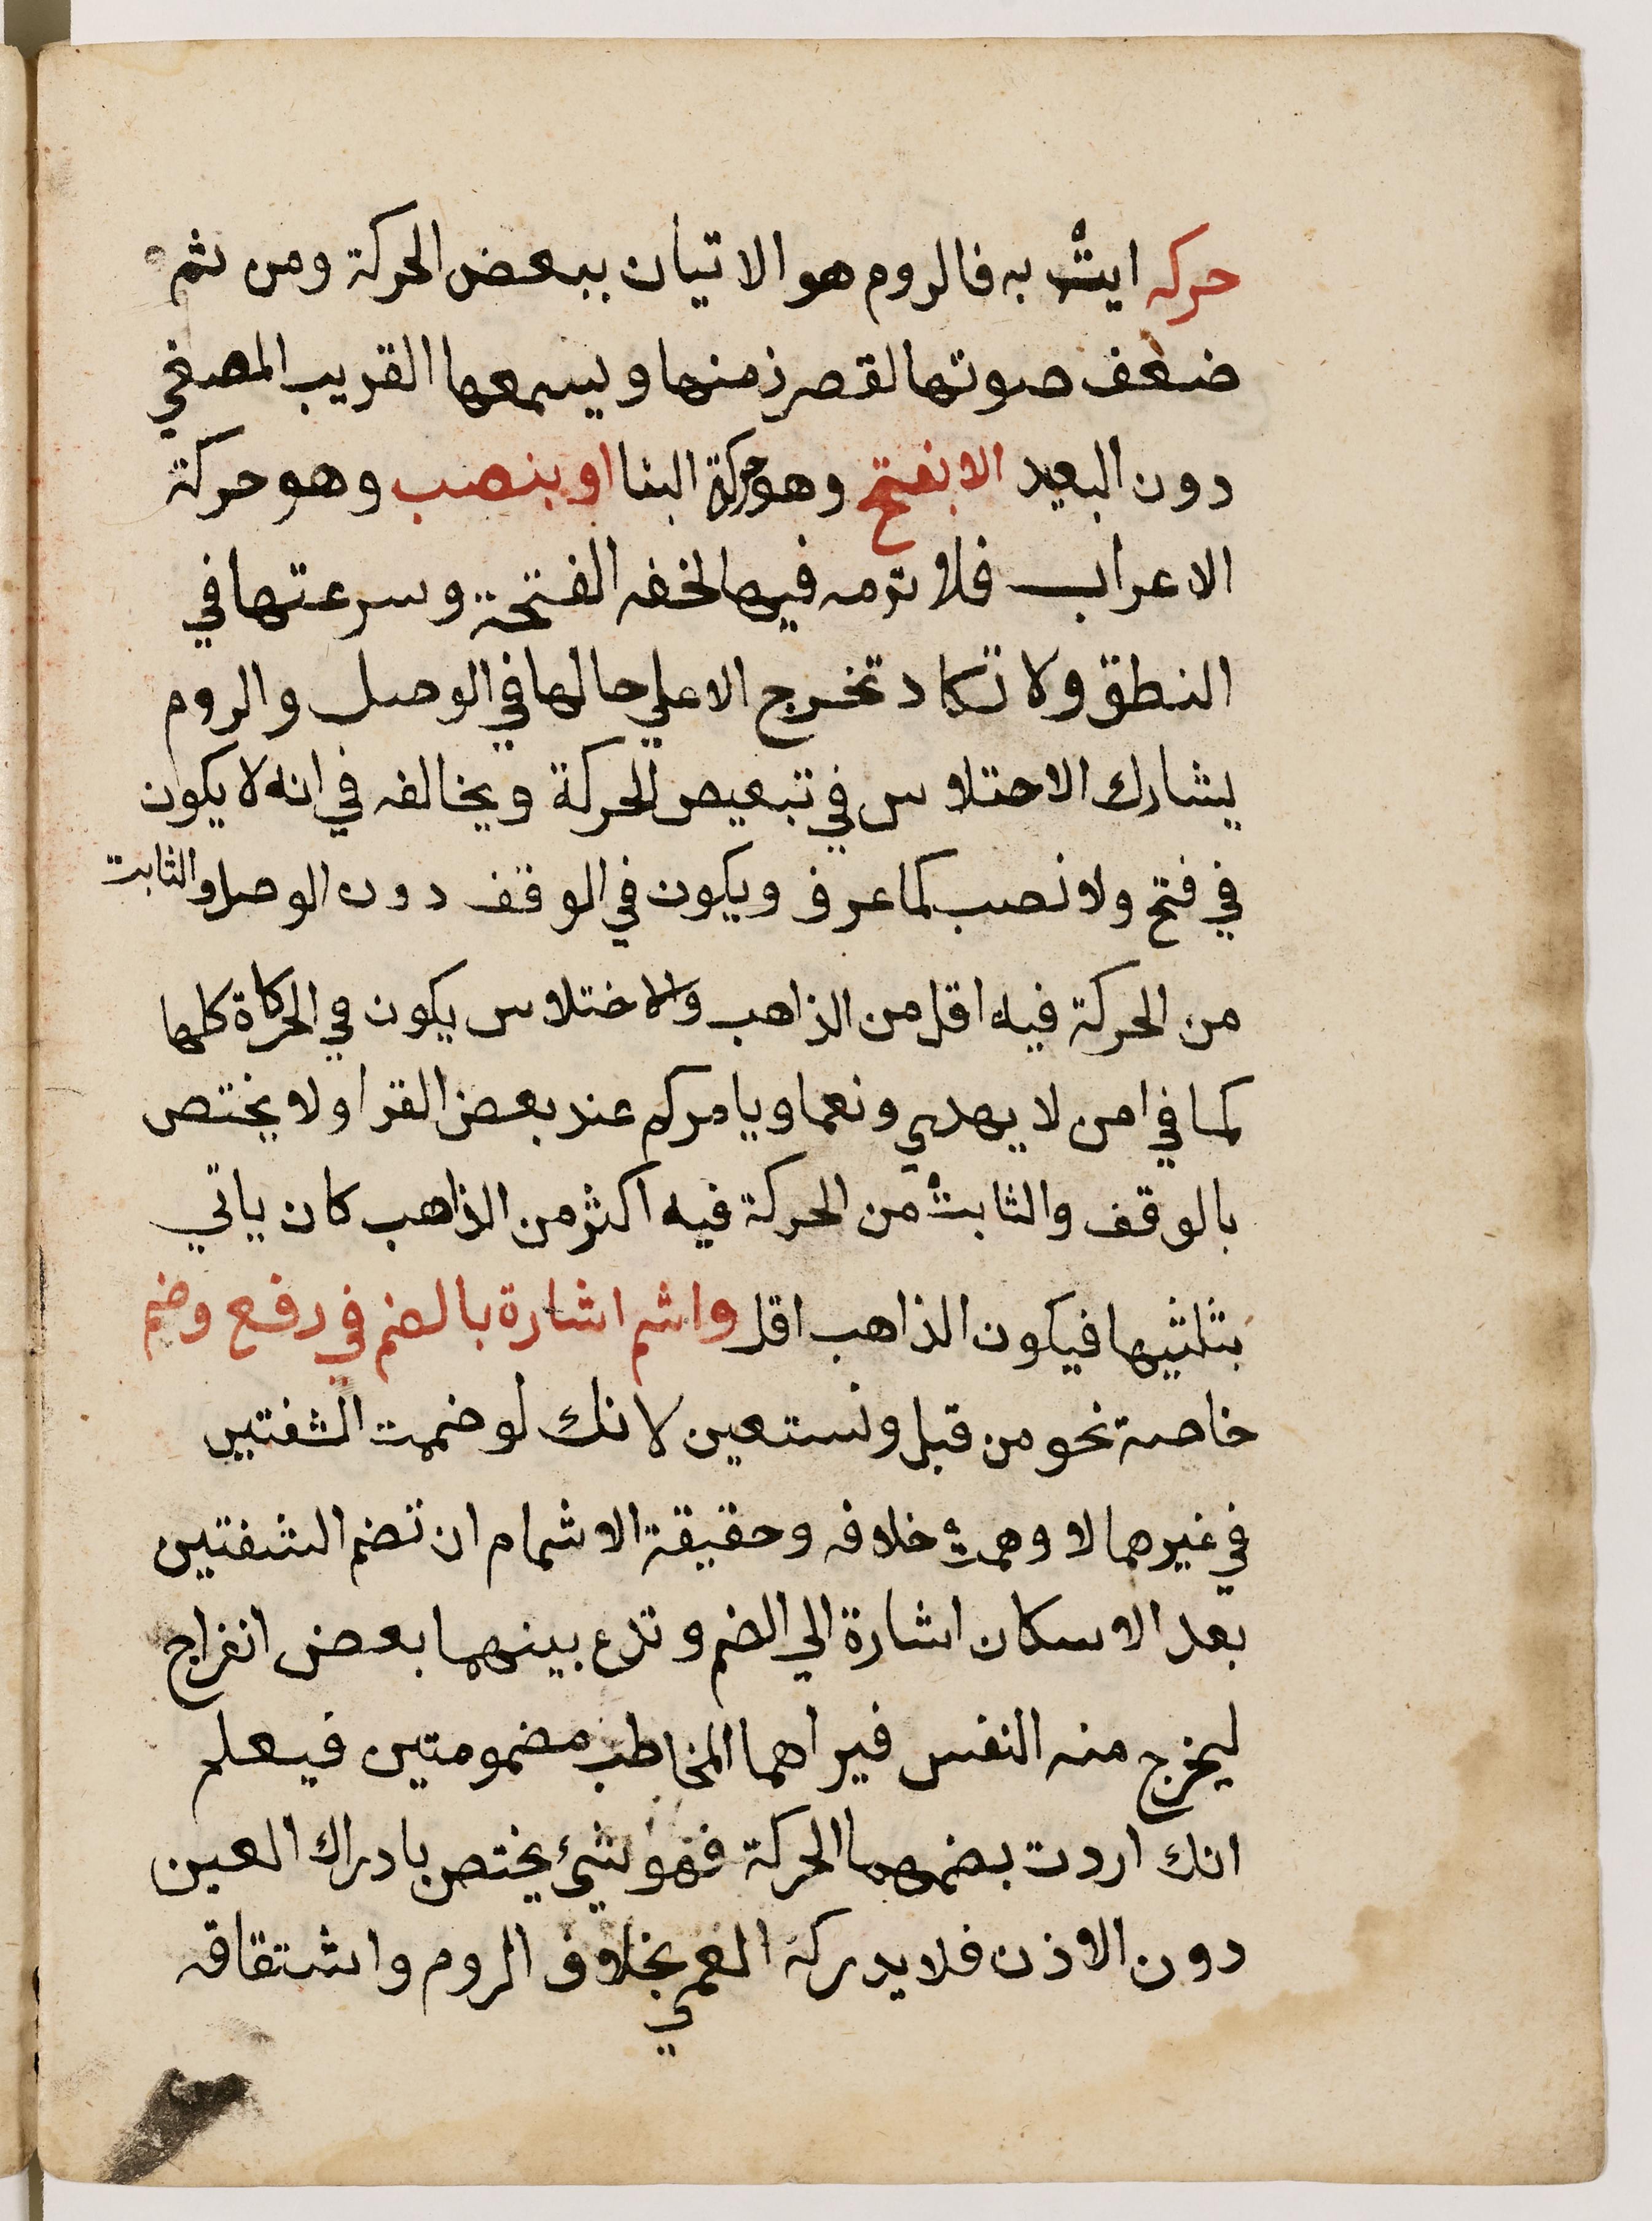 حركه ايتْ به فالروم هو الاتيان ببعض الحركة ومن ثم
ضعف صوتها لقصر زمنها ويسمعها القريب المصغي
دون البعيد الا بفتح وهو حركة البنا او بنصب وهو حركة
الاعراب فلا ترمه فيها لخفه الفتحة وسرعتها في
النطق ولا تكاد تخرج الا علي حالها في الوصل والروم
يشارك الاختلاس في تبعيض الحركة ويخالفه في انه لا يكون
في فتح ولا نصب كما عرف ويكون في الوقف دون الوصل والثابت
من الحركة فيه اقل من الذاهب والاختلاس يكون في الحركاة كلها
كما في امن لا يهدي ونعما ويامركم عند بعض القرا ولا يختص
بالوقف والثابتْ من الحركة فيه اكثر من الذاهب كان ياتي
بثلثيها فيكون الذاهب اقل واشم اشارة بالضم في رفع وضم
خاصة نحو من قبل ونستعين لانك لو ضممت الشفتين
في غيرهما لاوهمتْ خلافه وحقيقة الاشمام ان تضم الشفتين
بعد الاسكان اشارة الي الضم وتدع بينهما بعض انفراج
ليخرج منه النفس فيراهما المخاطب مضمومتين فيعلم
انك اردت بضمهما الحركة فهو شيء يختص بادراك العين
دون الاذن فلا يدركه العمي بخلاف الروم واشتقاقه